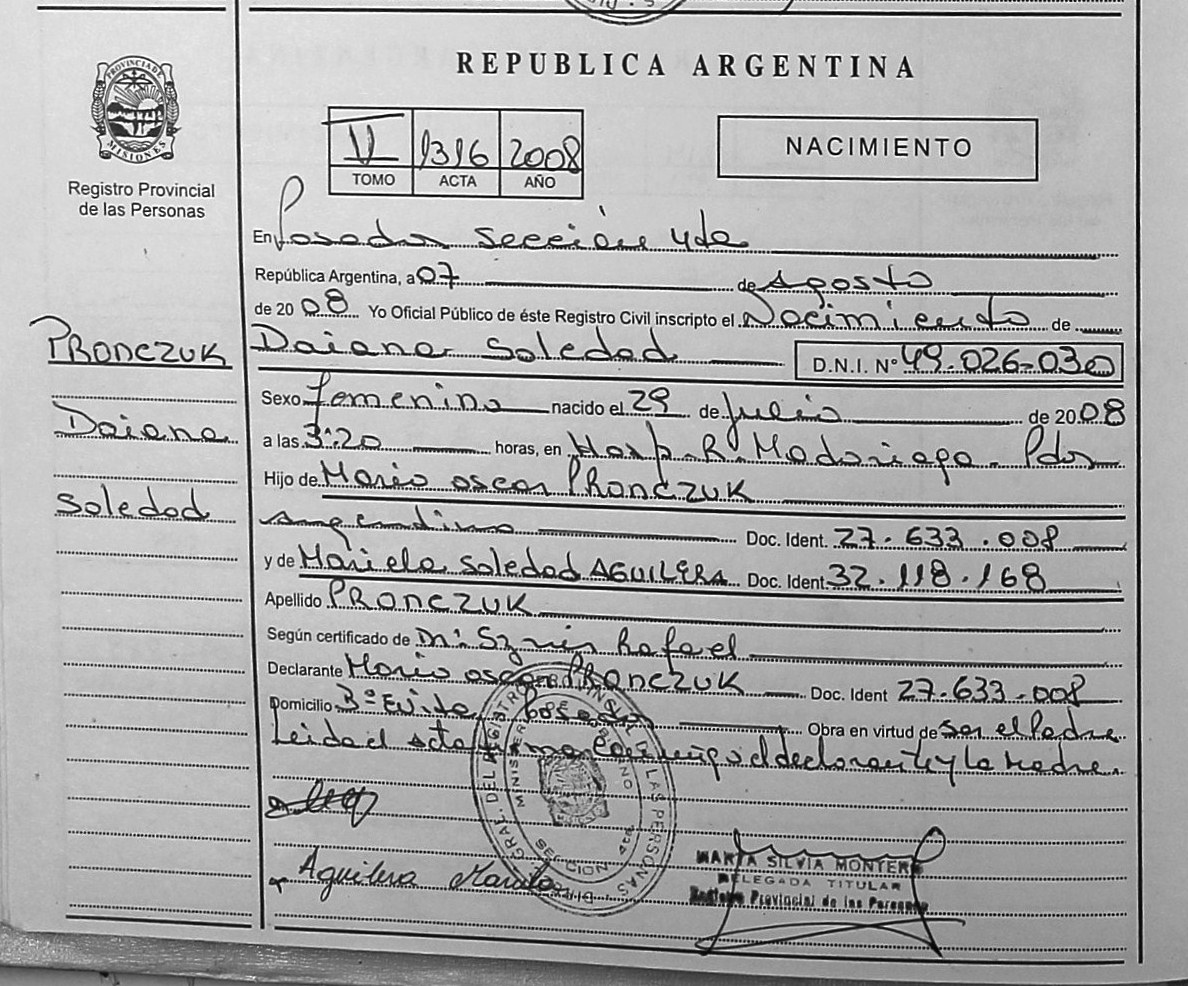 REPUBLICA ARGENTINA
PROVINCIA DE
MISIONES
Registro Provincial
de las Personas
V 1316 2008
TOMO ACTA AÑO
NACIMIENTO
En Posadas Sección 4ta
República Argentina, a 07 de Agosto
de 2008 Yo Oficial Público de éste Registro Civil inscripto el Nacimiento de
PRONCZUK
Daiana Soledad D.N.I. Nº 49.026.030
Sexo femenino nacido el 29 de Julio de 2008
Daiana
a las 3:20 horas, en Hosp. R. Madariaga - Pdas
Hijo de Mario oscar PRONCZUK
Soledad
argentino Doc. Ident. 27.633.008
y de Mariela Soledad AGUILERA Doc. Ident. 32.118.168
Apellido PRONCZUK
Según certificado de Rafael
Declarante Mario oscar PRONCZUK Doc. Ident 27.633.008
Domicilio Bº Evita, Posadas Obra en virtud de Ser el Padre
Leida el acta firman conmigo el declarante y la madre
Aguilera Mariela
MARTA SILVIA MONTERO
DELEGADA TITULAR
Registro Provincial de las Personas
GRAL. DEL REGISTRO PROVINCIAL DE LAS PERSONAS
SECCION 4ta